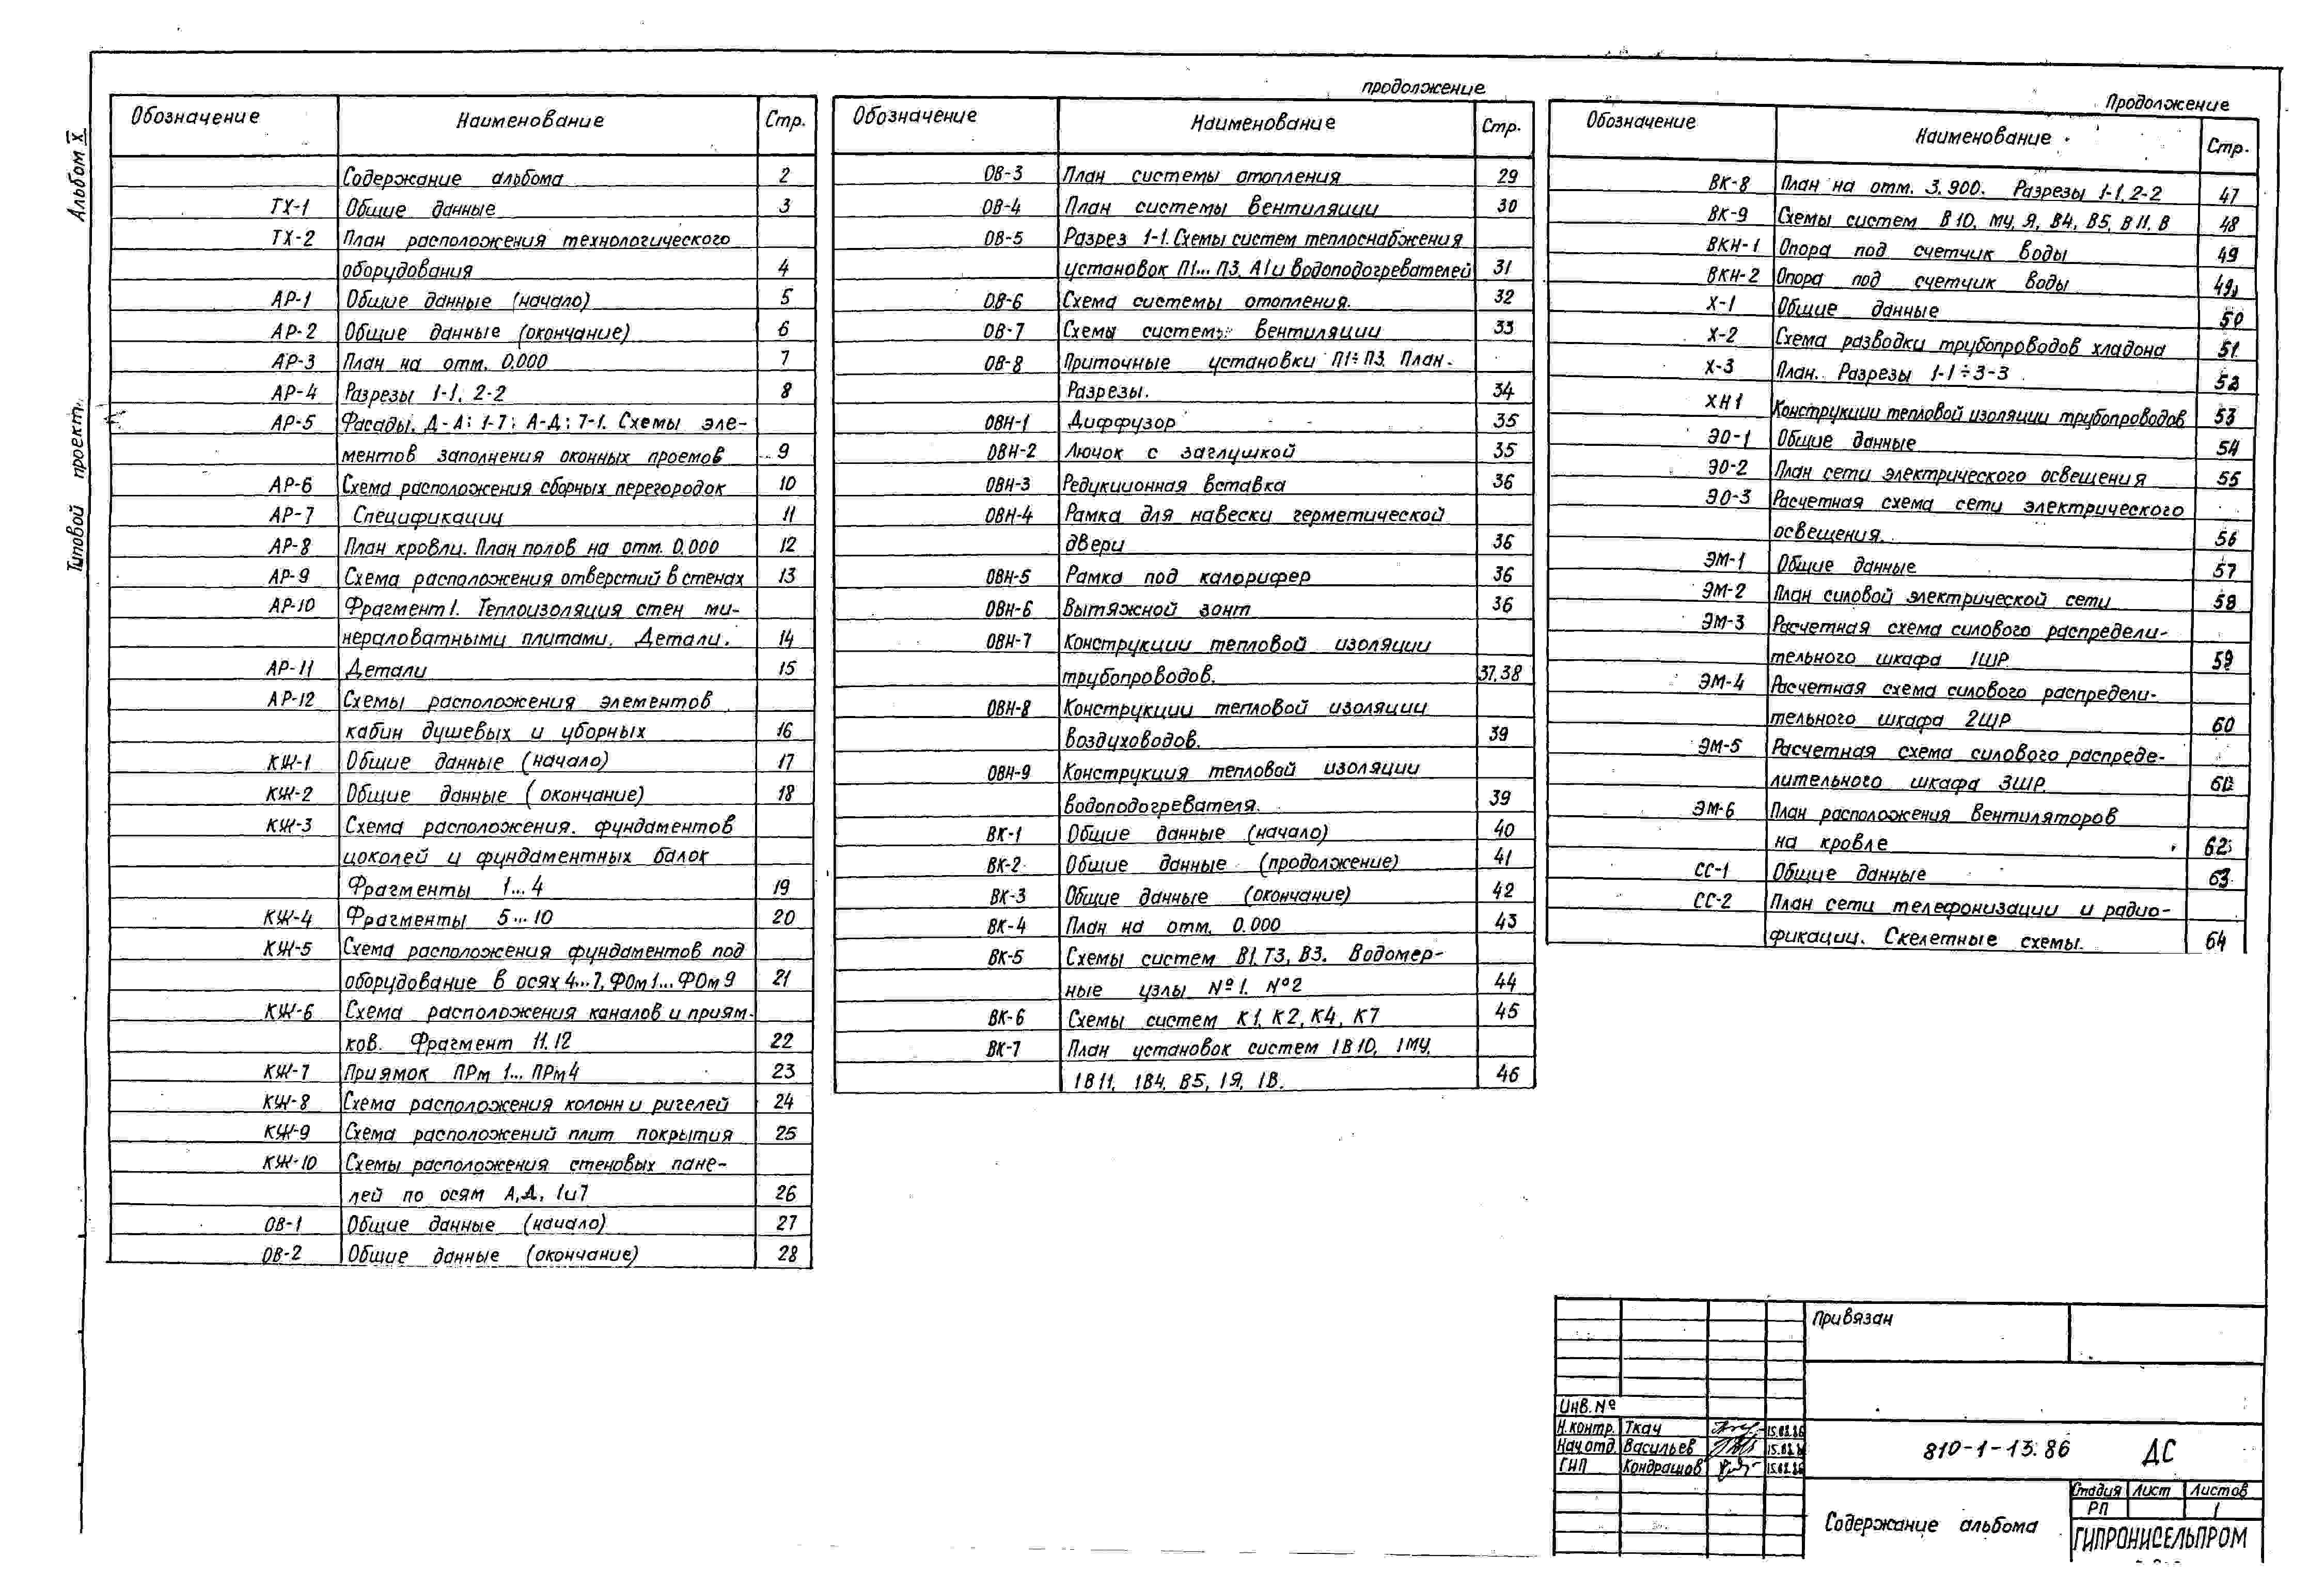 Альбом X
Типовой проект
Обозначение Наименование Стр.
Содержание альбома 2
ТХ-1 Общие данные 3
ТХ-2 План расположения технологического
оборудования 4
АР-1 Общие данные (начало) 5
АР-2 Общие данные (окончание) 6
АР-3 План на отм. 0.000 7
АР-4 Разрезы 1-1, 2-2 8
АР-5 Фасады. Д-А; 1-7; А-Д; 7-1. Схемы эле-
ментов заполнения оконных проемов 9
АР-6 Схема расположения сборных перегородок 10
АР-7 Спецификации 11
АР-8 План кровли. План полов на отм. 0.000 12
АР-9 Схема расположения отверстий в стенах 13
АР-10 Фрагмент 1. Теплоизоляция стен ми-
нераловатными плитами. Детали. 14
АР-11 Детали 15
АР-12 Схемы расположения элементов
кабин душевых и уборных 16
КЖ-1 Общие данные (начало) 17
КЖ-2 Общие данные (окончание) 18
КЖ-3 Схема расположения. фундаментов
цоколей и фундаментных балок
Фрагменты 1...4 19
КЖ-4 Фрагменты 5...10 20
КЖ-5 Схема расположения фундаментов под
оборудование в осях 4...7, ФОм1... ФОм9 21
КЖ-6 Схема расположения каналов и приям-
ков. Фрагмент 11.12 22
КЖ-7 Приямок ПРм 1... ПРм4 23
КЖ-8 Схема расположения колонн и ригелей 24
КЖ-9 Схема расположений плит покрытия 25
КЖ-10 Схемы расположения стеновых пане-
лей по осям А,Д, 1и7 26
ОВ-1 Общие данные (начало) 27
ОВ-2 Общие данные (окончание) 28
продолжение
Обозначение Наименование Стр.
ОВ-3 План системы отопления 29
ОВ-4 План системы вентиляции 30
ОВ-5 Разрез 1-1. Схемы систем теплоснабжения
установок П1... П3, А1 и водоподогревателей 31
ОВ-6 Схема системы отопления. 32
ОВ-7 Схемы системы вентиляции 33
ОВ-8 Приточные установки П1÷П3. План.
Разрезы. 34
ОВН-1 Диффузор 35
ОВН-2 Лючок с заглушкой 35
ОВН-3 Редукционная вставка 36
ОВН-4 Рамка для навески герметической
двери 36
ОВН-5 Рамка под калорифер 36
ОВН-6 Вытяжной зонт 36
ОВН-7 Конструкции тепловой изоляции
трубопроводов. 37,38
ОВН-8 Конструкции тепловой изоляции
воздуховодов. 39
ОВН-9 Конструкция тепловой изоляции
водоподогревателя. 39
ВК-1 Общие данные (начало) 40
ВК-2 Общие данные (продолжение) 41
ВК-3 Общие данные (окончание) 42
ВК-4 План на отм. 0.000 43
ВК-5 Схемы систем В1, Т3, В3. Водомер-
ные узлы №1. №2 44
ВК-6 Схемы систем К1, К2, К4, К7 45
ВК-7 План установок систем 1В10, 1МУ,
1В11, 1В4, В5, 1Я, 1В. 46
Продолжение
Обозначение Наименование Стр.
ВК-8 План на отм. 3.900. Разрезы 1-1, 2-2 47
ВК-9 Схемы систем В10, МУ, Я, В4, В5, В11, В 48
ВКН-1 Опора под счетчик воды 49
ВКН-2 Опора под счетчик воды 49
Х-1 Общие данные 50
Х-2 Схема разводки трубопроводов хладона 51
Х-3 План. Разрезы 1-1÷3-3 52
ХН1 Конструкции тепловой изоляции трубопроводов 53
ЭО-1 Общие данные 54
ЭО-2 План сети электрического освещения 55
ЭО-3 Расчетная схема сети электрического
освещения. 56
ЭМ-1 Общие данные 57
ЭМ-2 План силовой электрической сети 58
ЭМ-3 Расчетная схема силового распредели-
тельного шкафа 1ШР 59
ЭМ-4 Расчетная схема силового распредели-
тельного шкафа 2ШР 60
ЭМ-5 Расчетная схема силового распреде-
лительного шкафа 3ШР
ЭМ-6 План расположения вентиляторов
на кровле 62
СС-1 Общие данные 63
СС-2 План сети телефонизации и радио-
фикации. Скелетные схемы. 64
Привязан
Инв. №
Н.контр. Ткач 15.02.86
Нач отд. Васильев 15.02.8
ГИП Кондрашов 15.02.86
810-1-13.86 ДС
Содержание альбома
Стадия Лист Листов
РП 1
ГИПРОНИСЕЛЬПРОМ